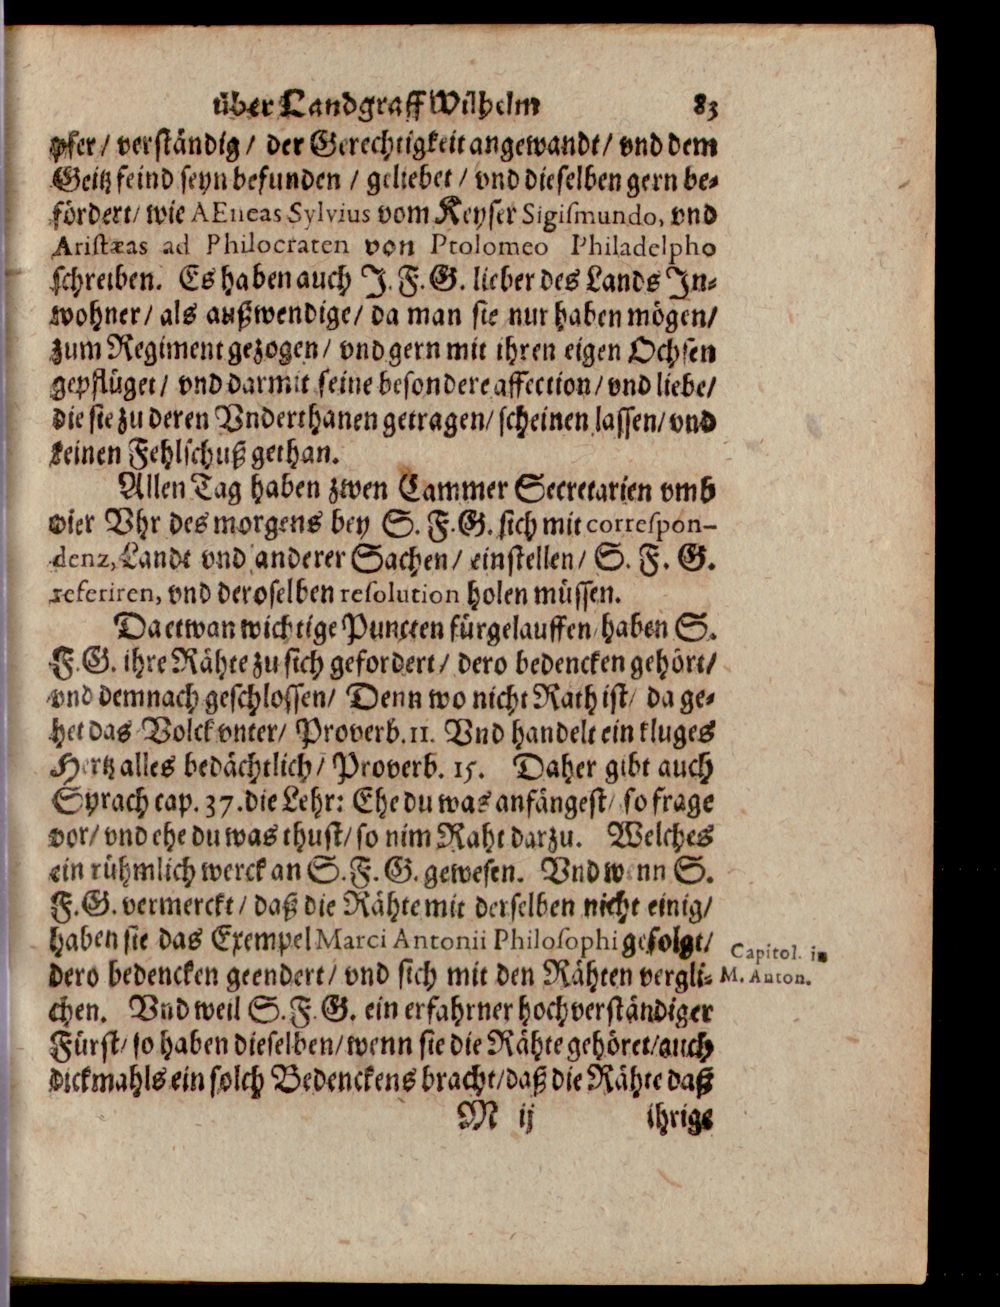 über Landgraff Wilhelm 83
pfer / verständig / der Gerechtigkeit angewandt / vnd dem
Geitz feind seyn befunden / geliebet / vnd dieselben gern be-
fördert / wie AEneas Sylvius vom Keyser Sigiſmundo, vnd
Aristæas ad Philocraten von Ptolomeo Philadelpho
schreiben. Es haben auch J. F. G. lieber des Lands In-
wohner / als außwendige / da man sie nur haben mögen /
zum Regiment gezogen / vnd gern mit ihren eigen Ochsen
gepflüget / vnd darmit seine besondere affection / vnd liebe /
die sie zu deren Vnderthanen getragen / scheinen lassen / vnd
keinen Fehlschuß gethan.
Allen Tag haben zwen Cammer Secretarien vmb
vier Vhr des morgens bey S. F. G. sich mit correſpon-
denz, Landt vnd anderer Sachen / einstellen / S. F. G.
referiren, vnd deroselben reſolution holen müssen.
Da etwan wichtige Puncten fürgelauffen / haben S.
F. G. ihre Rähte zu sich gefordert / dero bedencken gehört /
vnd demnach geschlossen / Denn wo nicht Rath ist / da ge-
het das Volck vnter / Proverb. 11. Vnd handelt ein kluges
Hertz alles bedächtlich / Proverb. 15. Daher gibt auch
Syrach cap. 37. die Lehr: Ehe du was anfängest / so frage
vor / vnd ehe du was thust / so nim Raht darzu. Welches
ein rühmlich werck an S. F. G. gewesen. Vnd wenn S.
F. G. vermerckt / daß die Rähte mit derselben nicht einig /
haben sie das Exempel Marci Antonii Philoſophi gefolgt /
dero bedencken geendert / vnd sich mit den Rähten vergli-
chen. Vnd weil S. F. G. ein erfahrner hochverständiger
Fürst / so haben dieselben / wenn sie die Rähte gehöret / auch
dickmahls ein solch Bedenckens bracht / daß die Rähte daß
M ij ihrige
Capitol. in
M. Anton.